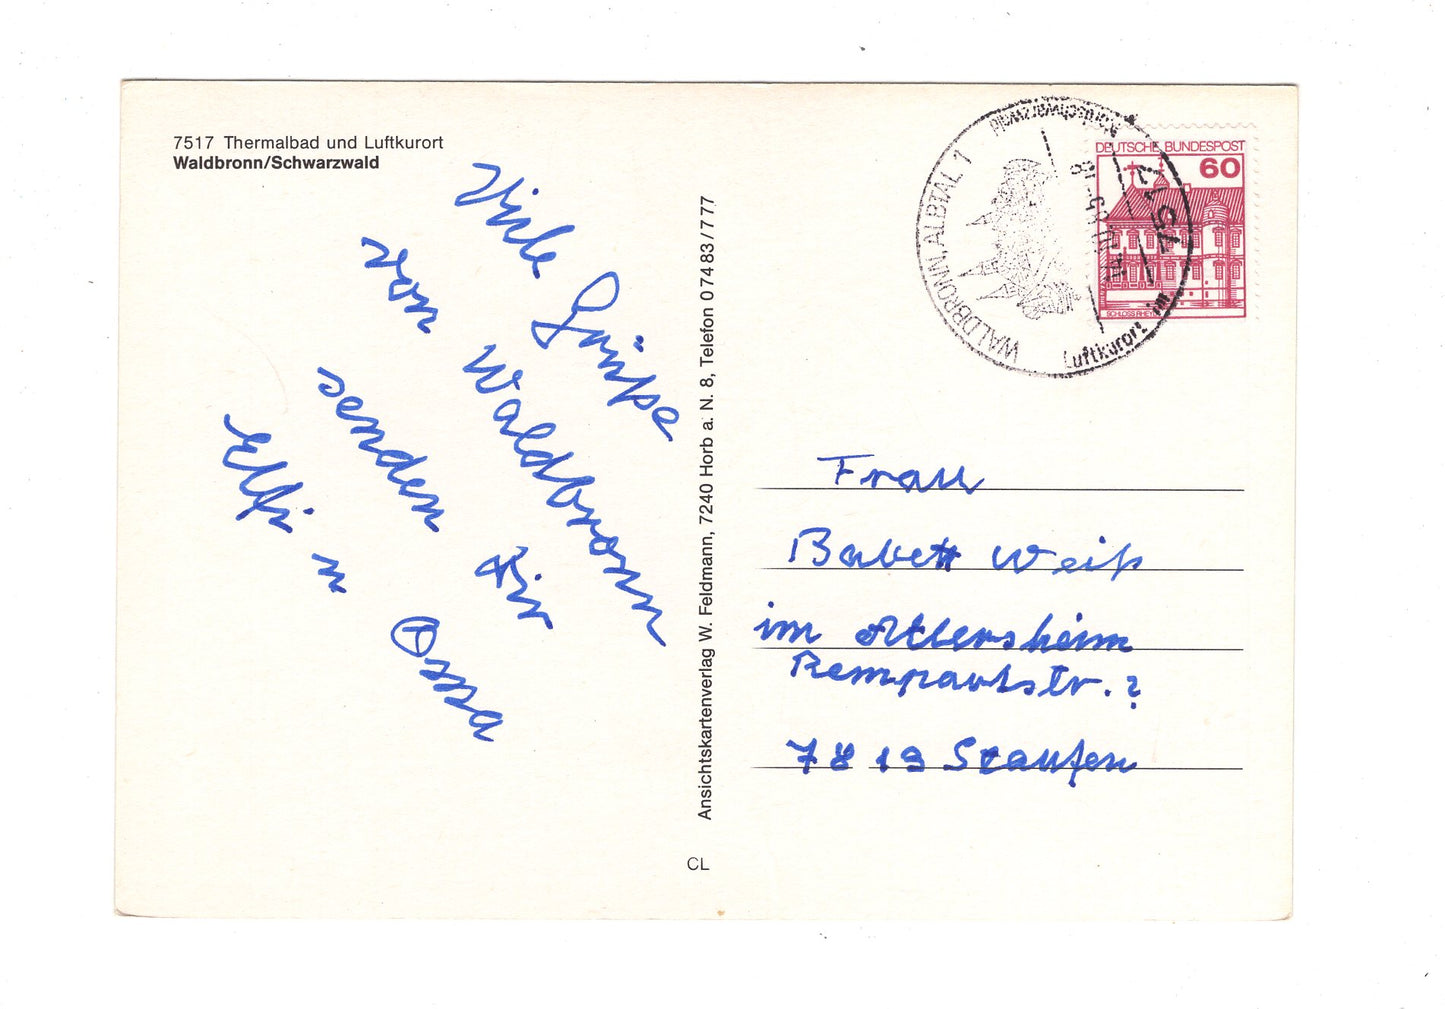 7517 Thermalbad und Luftkurort
Waldbronn/Schwarzwald
Viele Grüße
von Waldbronn
senden Dir
Elfi u Ossa
Ansichtskartenverlag W. Feldmann, 7240 Horb a. N. 8, Telefon 0 74 83 / 7 77
CL
DEUTSCHE BUNDESPOST
60
WALDBRONN, ALBTAL 1
7517
Luftkurort im
Nordschwarzwald
Frau
Babett Weiß
im Altersheim
Rempartstr. 2
7813 Staufen